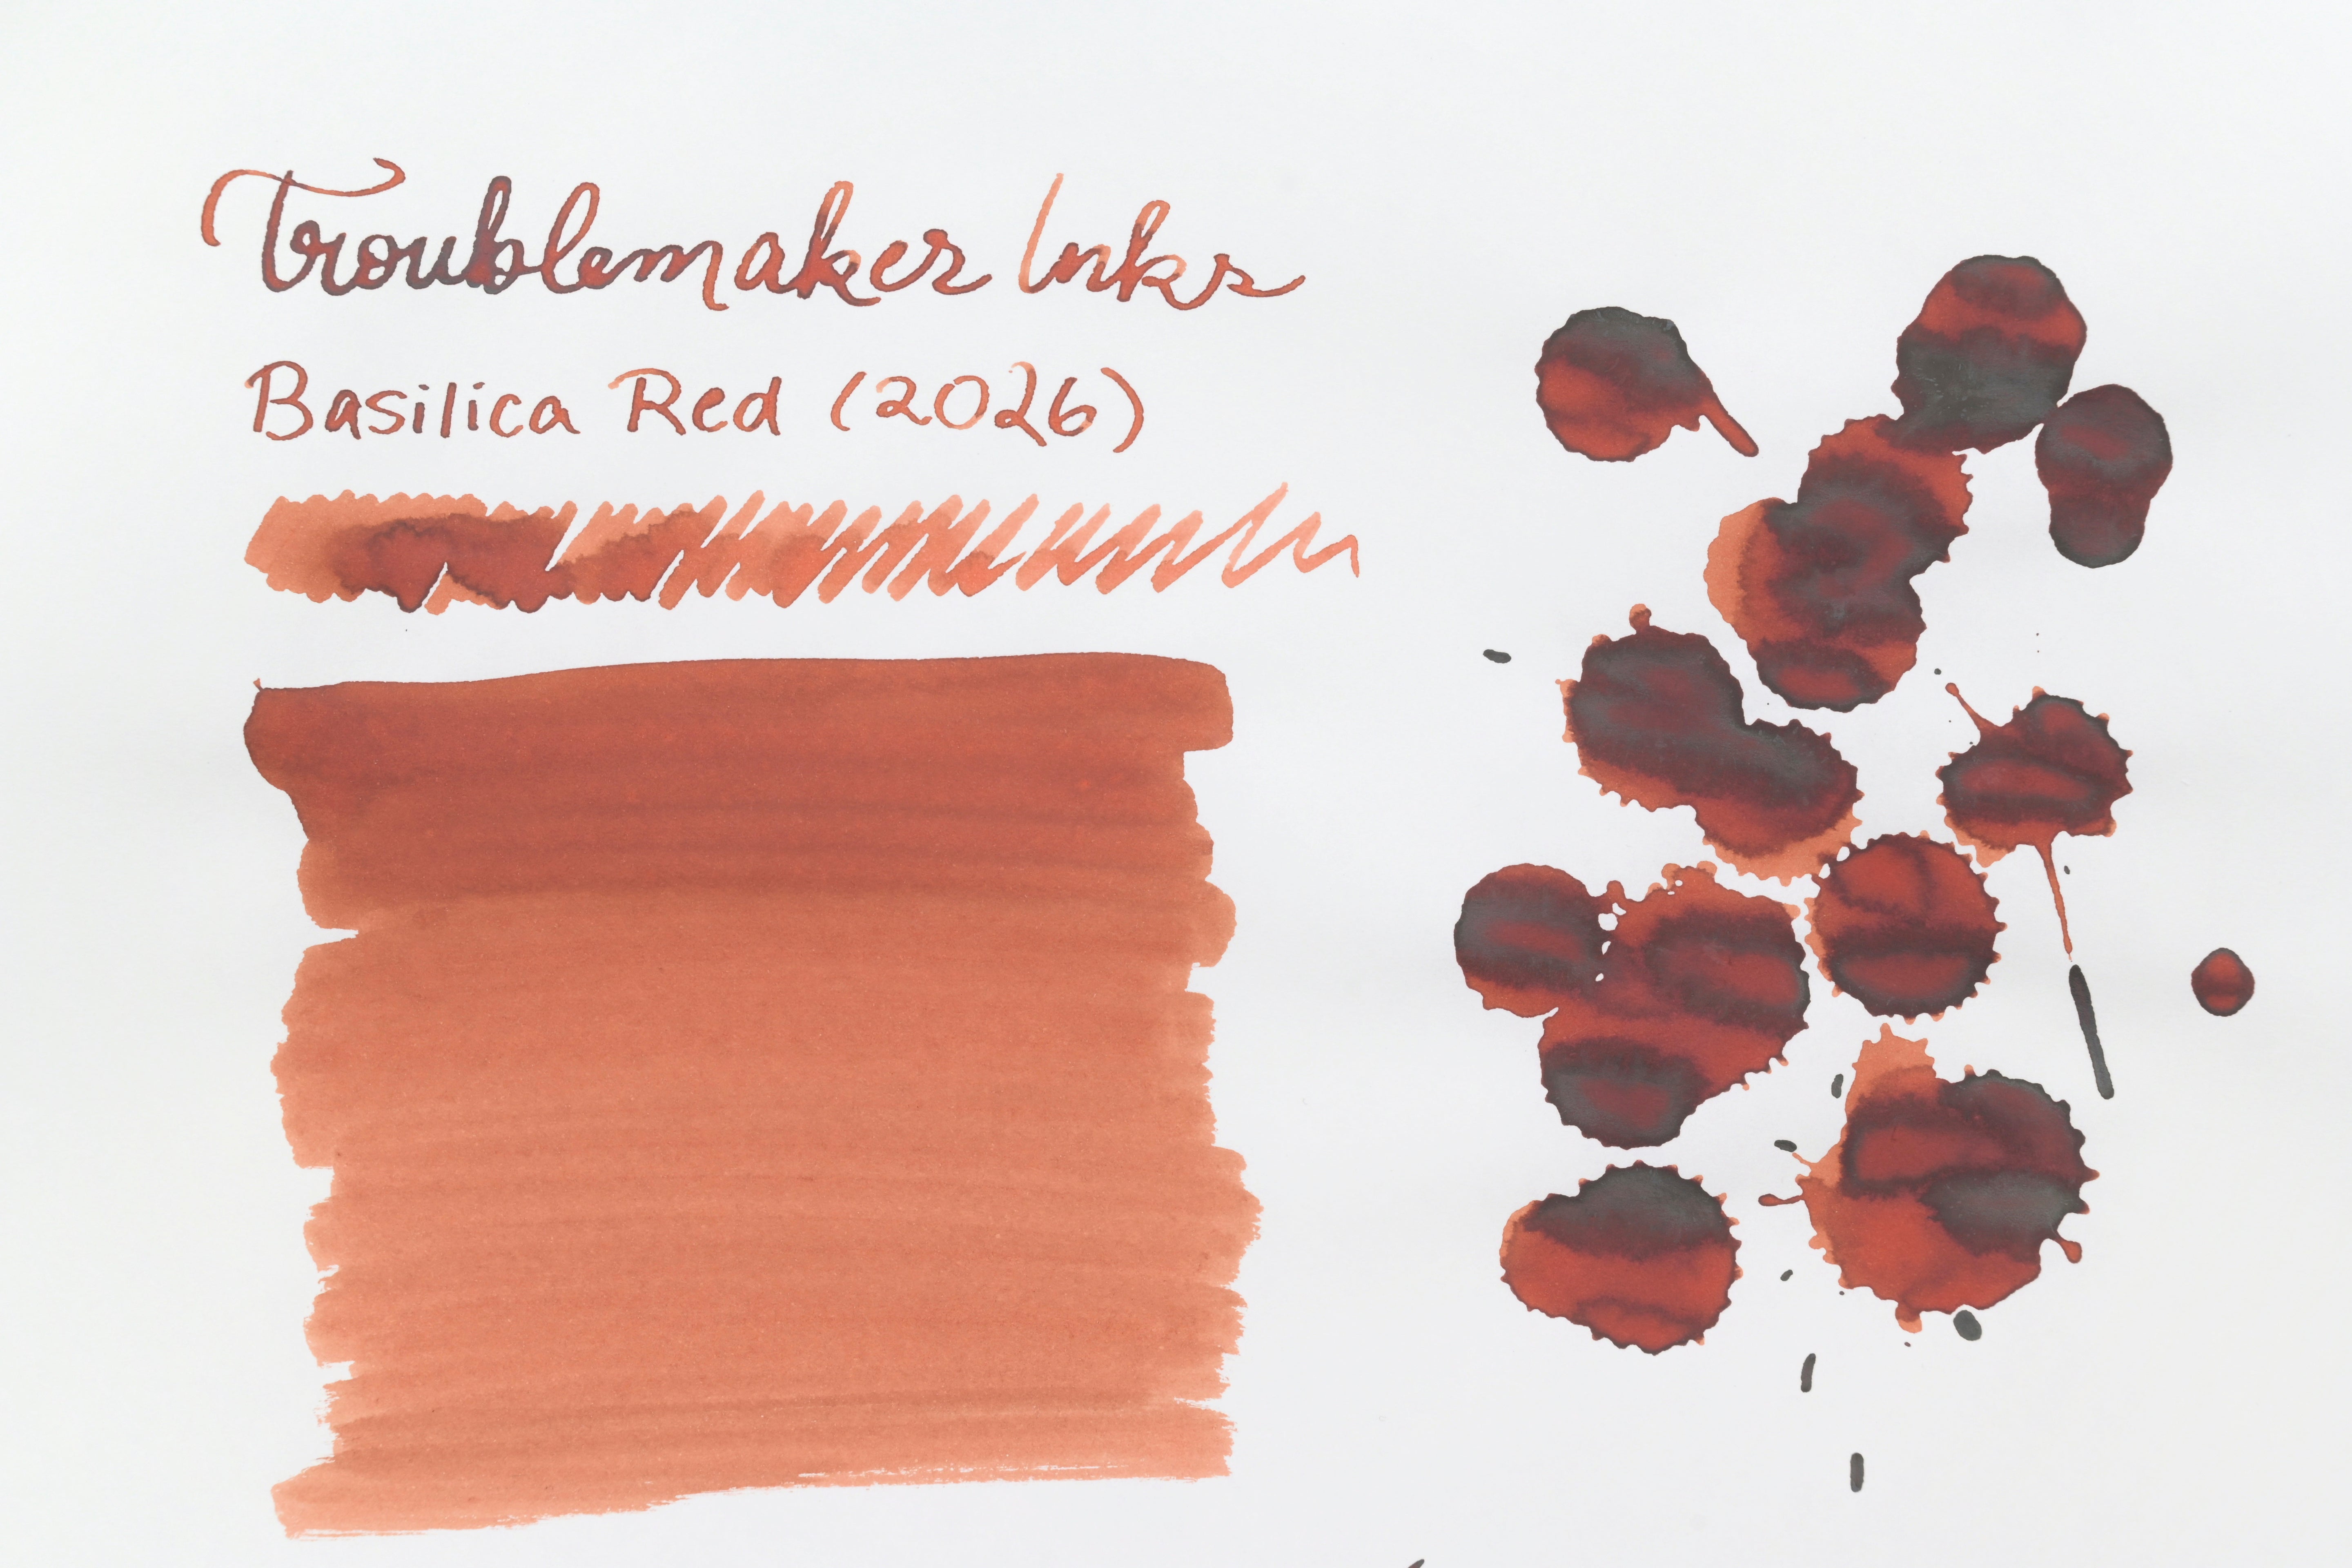 Troublemaker Inks
Basilica Red (2026)